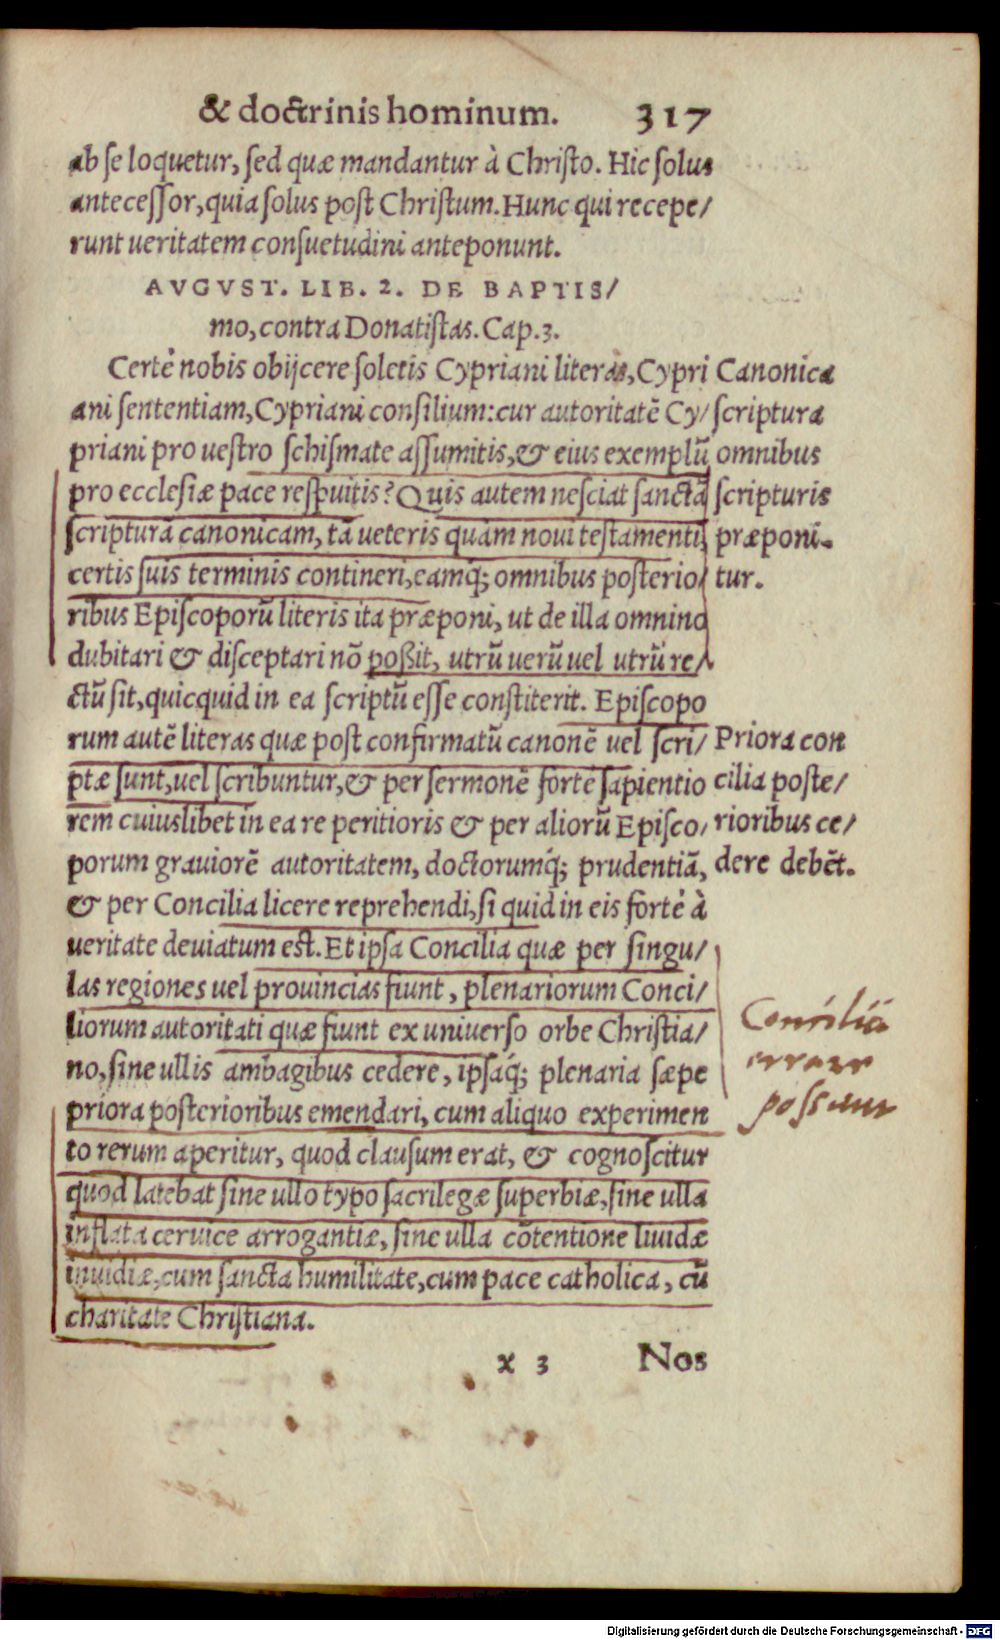 & doctrinis hominum. 317
ab se loquetur, sed quæ mandantur à Christo. Hic solus
antecessor, quia solus post Christum. Hunc qui recepe/
runt ueritatem consuetudini anteponunt.
AVGVST. LIB. 2. DE BAPTIS/
mo, contra Donatistas. Cap. 3.
Certè nobis obijcere soletis Cypriani literas, Cypri
ani sententiam, Cypriani consilium: cur autoritatē Cy/
priani pro uestro schismate assumitis, & eius exemplū
pro ecclesiæ pace respuitis? Quis autem nesciat sanctā
scripturā canonicam, tā ueteris quàm noui testamenti,
certis suis terminis contineri, eamq́; omnibus posterio/
ribus Episcoporū literis ita præponi, ut de illa omnino
dubitari & disceptari nō poßit, utrū uerū uel utrū re/
ctū sit, quicquid in ea scriptū esse constiterit. Episcopo
rum autē literas quæ post confirmatū canonē uel scri/
ptæ sunt, uel scribuntur, & per sermonē fortè sapientio
rem cuiuslibet in ea re peritioris & per aliorū Episco/
porum grauiorē autoritatem, doctorumq́; prudentiā,
& per Concilia licere reprehendi, si quid in eis fortè à
ueritate deuiatum est. Et ipsa Concilia quæ per singu/
las regiones uel prouincias fiunt, plenariorum Conci/
liorum autoritati quæ fiunt ex uniuerso orbe Christia/
no, sine ullis ambagibus cedere, ipsaq́; plenaria sæpe
priora posterioribus emendari, cum aliquo experimen
to rerum aperitur, quod clausum erat, & cognoscitur
quod latebat sine ullo typo sacrilegæ superbiæ, sine ulla
inflata ceruice arrogantiæ, sine ulla cōtentione liuidæ
inuidiæ, cum sancta humilitate, cum pace catholica, cū
charitate Christiana.
x 3 Nos
Canonica
scriptura
omnibus
scripturis
præponi-
tur.
Priora con
cilia poste/
rioribus ce/
dere debēt.
Concilia
errare
possunt
Digitalisierung gefördert durch die Deutsche Forschungsgemeinschaft - DFG